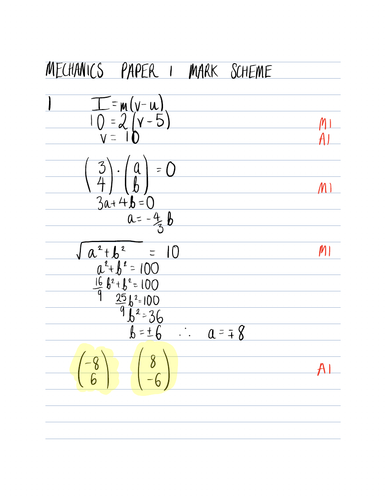 MECHANICS PAPER 1 MARK SCHEME
1 I = m(v-u)
10 = 2(v-5) M1
v = 10 A1
(3 4) · (a b) = 0 M1
3a+4b=0
a = -4/3 b
√(a²+b²) = 10 M1
a²+b² = 100
16/9 b² + b² = 100
25/9 b² = 100
b² = 36
b = ±6 ∴ a = ∓8
(-8 6) (8 -6) A1